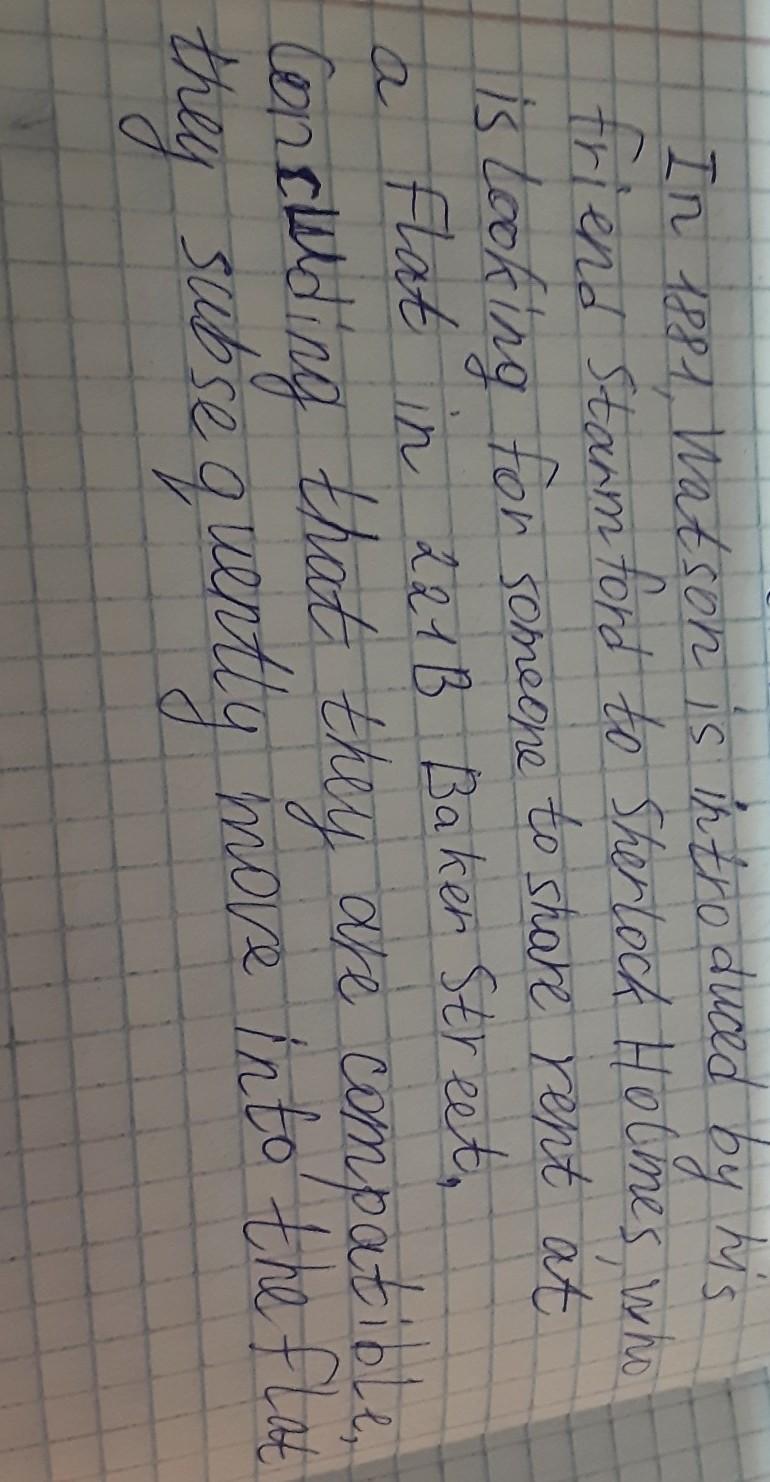 In 1881, Watson is introduced by his
friend Starmford to Sherlock Holmes, who
is looking for someone to share rent at
a flat in 221B Baker Street,
Conculding that they are compatible,
they subsequently move into the flat